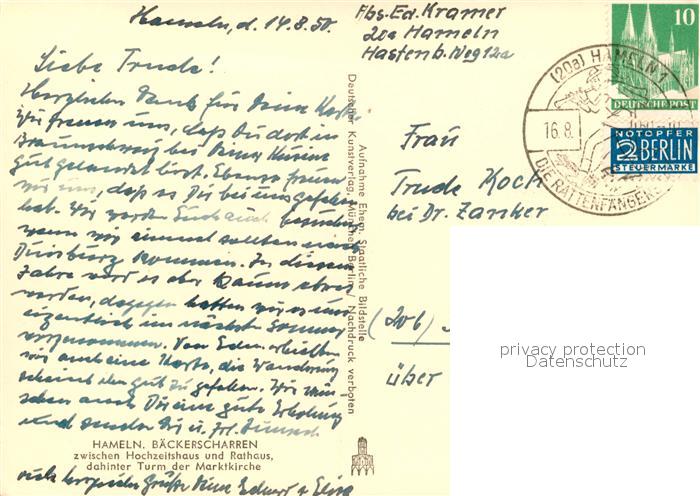 Hameln, d. 14.8.50.
Liebe Trude!
Herzlichen Dank für Deine Karte
Wir freuen uns, daß Du dort in
Braunschweig bei Deiner Kusine
gut gelandet bist. Ebenso freuen
wir uns, daß es Dir bei uns gefallen
hat. Wir werden Euch auch besuchen
wenn wir einmal sollten nach
Duisburg kommen. In diesem
Jahre wird es aber kaum etwas
werden, dagegen hatten wir es uns
eigentlich im nächsten Sommer
vorgenommen. Von Edm. erhielten
wir auch eine Karte, die Wanderung
scheint den gut zu gefallen. Wir wün-
schen auch Dir eine gute Erholung
und senden Dir u. Frl.
viele herzliche Grüße Deine Eduard u. Elise
HAMELN. BÄCKERSCHARREN
zwischen Hochzeitshaus und Rathaus,
dahinter Turm der Marktkirche
Aufnahme Ehem. Staatliche Bildstelle
Deutscher Kunstverlag, München Berlin / Nachdruck verboten
Abs. Ed. Kramer
20a Hameln
Hastenb. Weg 12a
Frau
Trude Koch
bei Dr. Zanker
(20b)
über
10
DEUTSCHE POST
NOTOPFER
2 BERLIN
STEUERMARKE
(20a) HAMELN 1
16.8.
DIE RATTENFÄNGER
privacy protection
Datenschutz